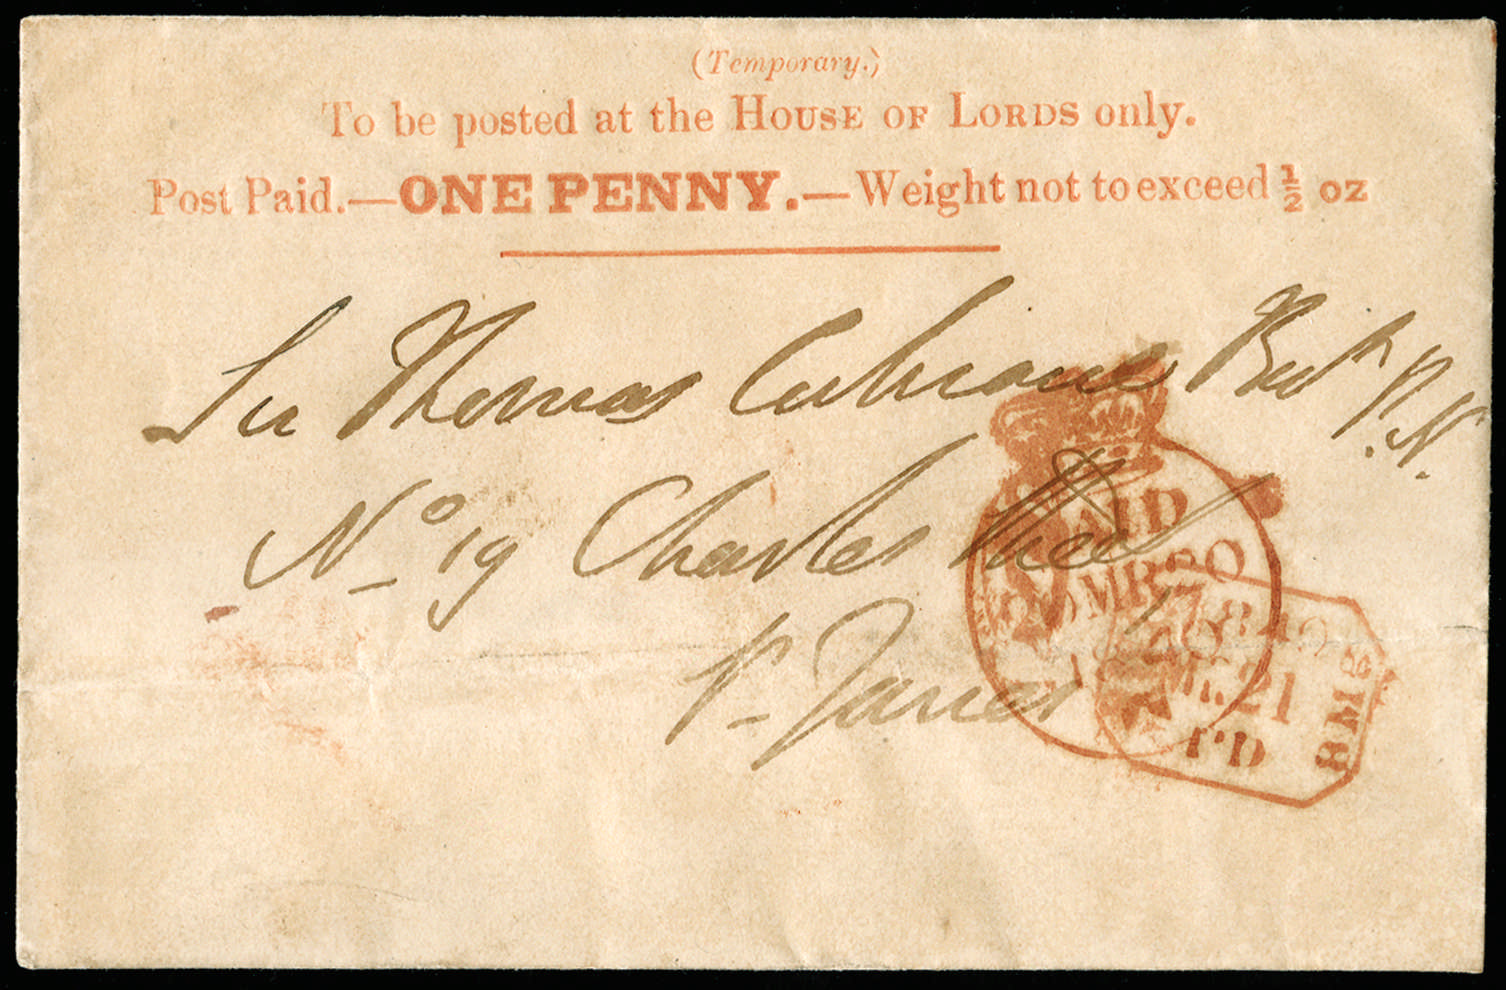 (Temporary.)
To be posted at the HOUSE OF LORDS only.
Post Paid.—ONE PENNY.—Weight not to exceed ½ oz
Sir Thomas Cochrane Bart R.N.
No 19 Charles Street
St James
PAID
20
1840
21
PD